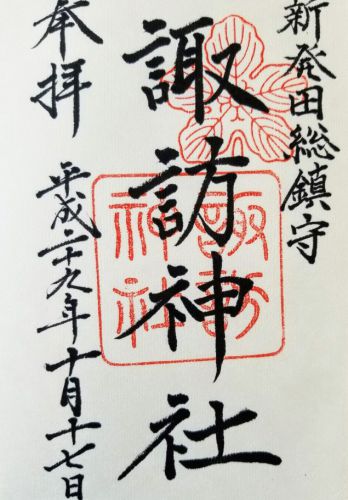 新発田総鎮守
諏訪神社
諏訪神社
奉拝
平成二十九年十月十七日